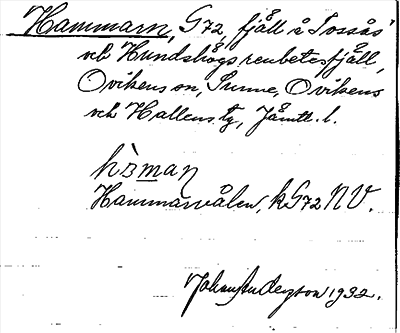 Hammarn, G72, fjäll å Tossås
och Hundshögs renbetesfjäll,
Ovikens sn, Sunne, Ovikens
och Hallens tg, Jämtl. l.
Hammarvålen, kG72 NV.
Johan Anderzon 1932.